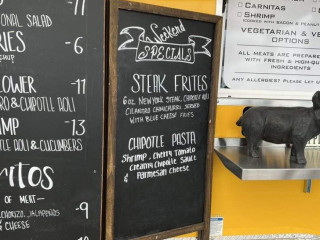 ONAL SALAD
-6
RIES
-11
LOWER
-11
RO & CHIPOTLE AIOLI
MP
-13
TLE AIOLI & CUCUMBERS
ritos
OF MEAT
CHORIZO, JALAPEÑOS
& CHEESE
-9
Weekend
SPECIALS
STEAK FRITES
6 OZ NEW YORK STEAK, CHIPOTLE AIOLI
CILANTRO CHIMICHURRI SERVED
WITH BLUE CHEESE FRIES
CHIPOTLE PASTA
Shrimp, Cherry Tomato
Creamy Chipotle Sauce
& Parmesan Cheese
CARNITAS
SHRIMP
COOKED WITH BACON & PEANUT
VEGETARIAN & VE
OPTIONS
ALL MEATS ARE PREPARE
WITH FRESH & HIGH-QU
INGREDIENTS
ANY ALLERGIES? PLEASE LET U